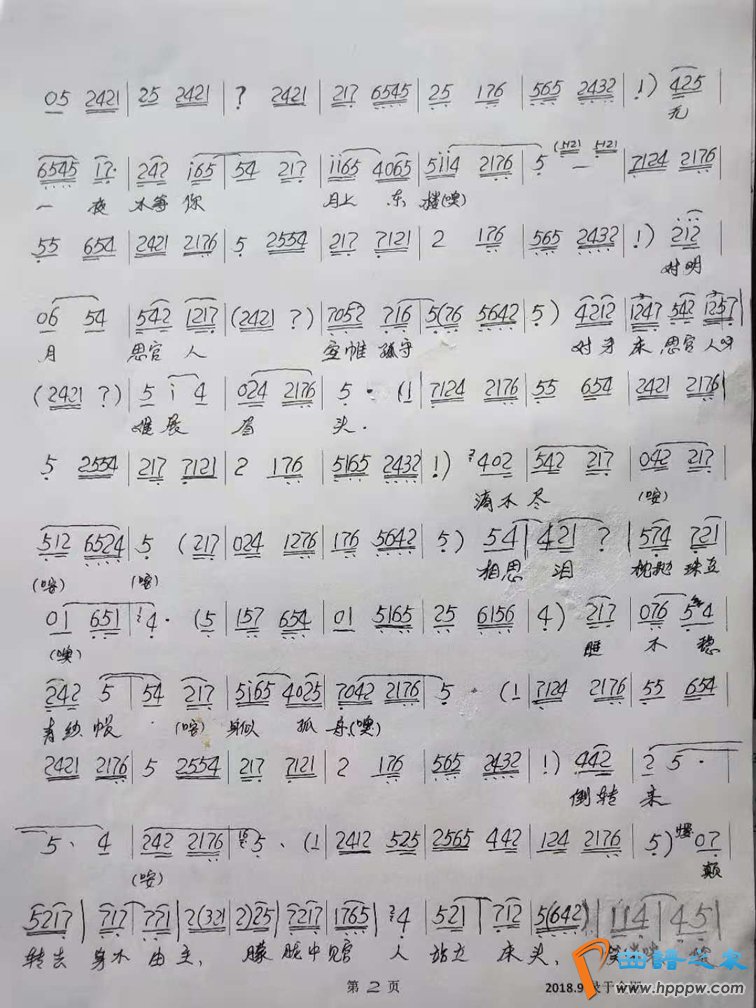 05 2421 | 25 2421 | ? 2421 | 217 6545 | 25 176 | 565 2432 | 1) 425
无
6545 17· | 242 i65 | 54 217 | ii65 4065 | 5ii4 2176 | 5 – | 7124 2176
一夜不等你 月上东楼(噢)
55 654 | 2421 2176 | 5 2554 | 217 7121 | 2 176 | 565 2432 | 1) 212
对明
06 54 | 542 1217 | (2421 ?) | 7052 716 | 5(76 5642 | 5) 4212 | 1247 542 1257
月 思官人 空帷孤守 对牙床思官人
(2421 ?) | 5 i 4 | 024 2176 | 5 · (1 | 7124 2176 | 55 654 | 2421 2176
难展眉头.
5 2554 | 217 7121 | 2 176 | 5165 2432 | 1) 402 | 542 217 | 042 217
滴不尽 (咹)
512 6524 | 5 (217 | 024 1276 | 176 5642 | 5) 54 | 421 ? | 574 721
相思泪
01 651 | 4 · (5 | 157 654 | 01 5165 | 25 6156 | 4) 217 | 076 5 4
(噢) 睡不稳
242 5 | 54 217 | 5i65 4025 | 7042 2176 | 5 · (1 | 7124 2176 | 55 654
青纱帐 身似孤舟(噢)
2421 2176 | 5 2554 | 217 7121 | 2 176 | 565 2432 | 1) 442 | 2 5 ·
倒转来
5 · 4 | 242 2176 | 5 · (1 | 2412 525 | 2565 442 | 124 2176 | 5) 07
(咹) 颠
5217 | 717 771 | 2(321 | 2)25 | 7217 | 1765 | 4 | 521 712 | 5(642) | 114 | 45
转去身不由主, 朦胧中见官人站立床头,
第 2 页
2018.9
曲谱之家
www.hpppw.com